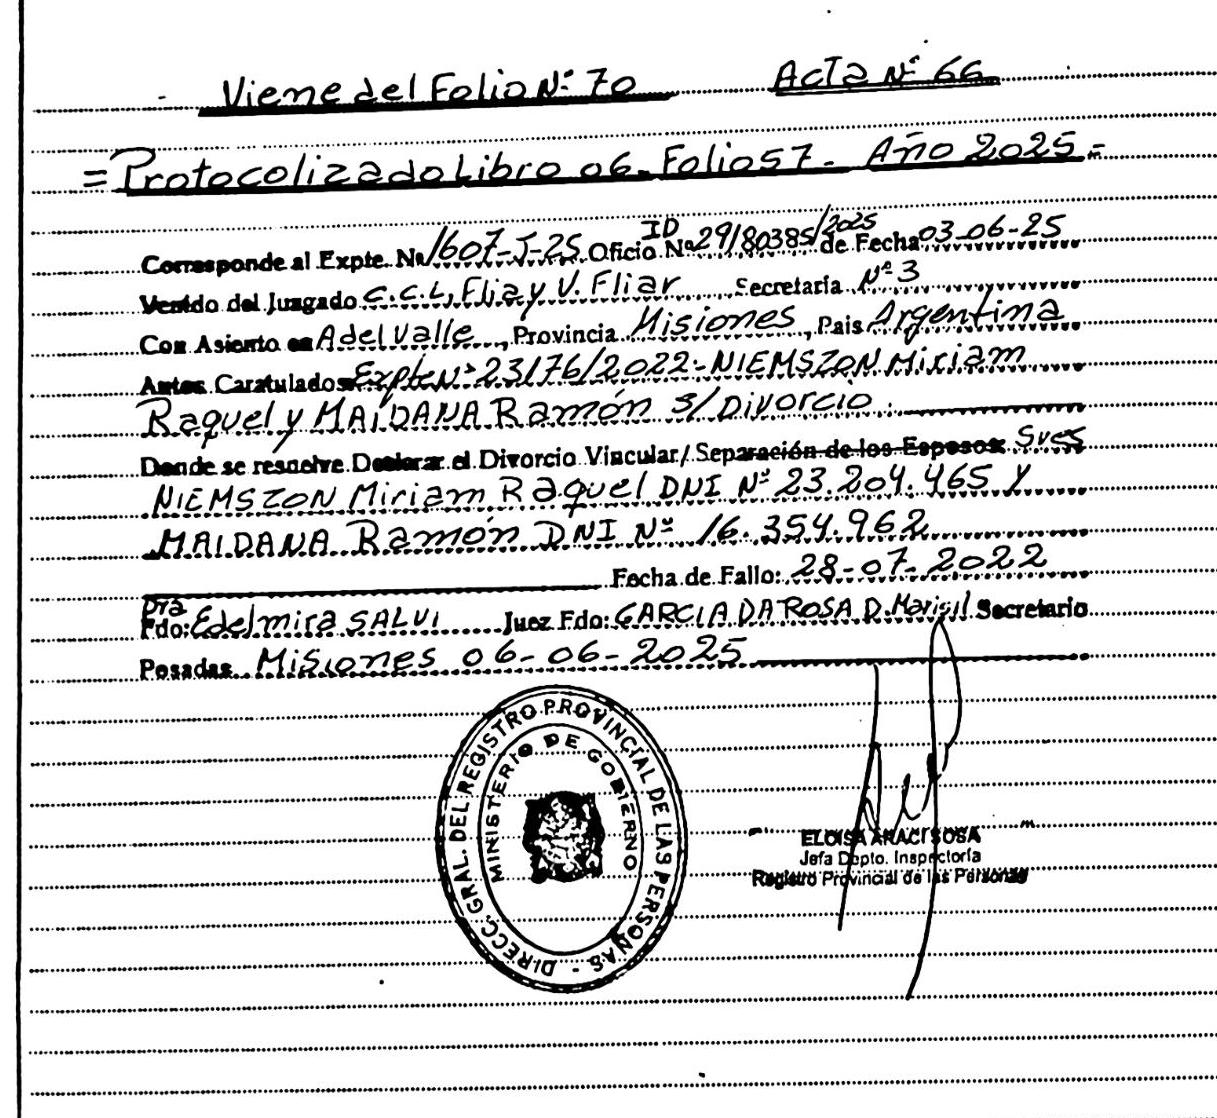 Viene del Folio Nº 70 Acta Nº 66
= Protocolizado Libro 06 - Folio 57 - Año 2025 =
Corresponde al Expte. Nº 1607-J-25 Oficio ID Nº 29/80385/2025 de Fecha 03-06-25
Venido del Juzgado C.C.L, Flia y V. Fliar Secretaria Nº 3
Con Asiento en A del Valle, Provincia Misiones, Pais Argentina
Autos Caratulados Expte Nº 23176/2022 - NIEMSZON Miriam
Raquel y MAIDANA Ramón s/ Divorcio.
Donde se resuelve Declarar el Divorcio Vincular/ Separación de los Esposos: Sres
NIEMSZON Miriam Raquel DNI Nº 23.204.465 y
MAIDANA Ramón DNI Nº 16.354.962
Fecha de Fallo: 28-07-2022
Dra
Fdo: Edelmira SALVI Juez Fdo: GARCIA DA ROSA D. Marisil Secretario
Posadas Misiones 06-06-2025
DIRECC. GRAL. DEL REGISTRO PROVINCIAL DE LAS PERSONAS -
MINISTERIO DE GOBIERNO
ELOISA ARACI SOSA
Jefa Dpto. Inspectoría
Registro Provincial de las Personas